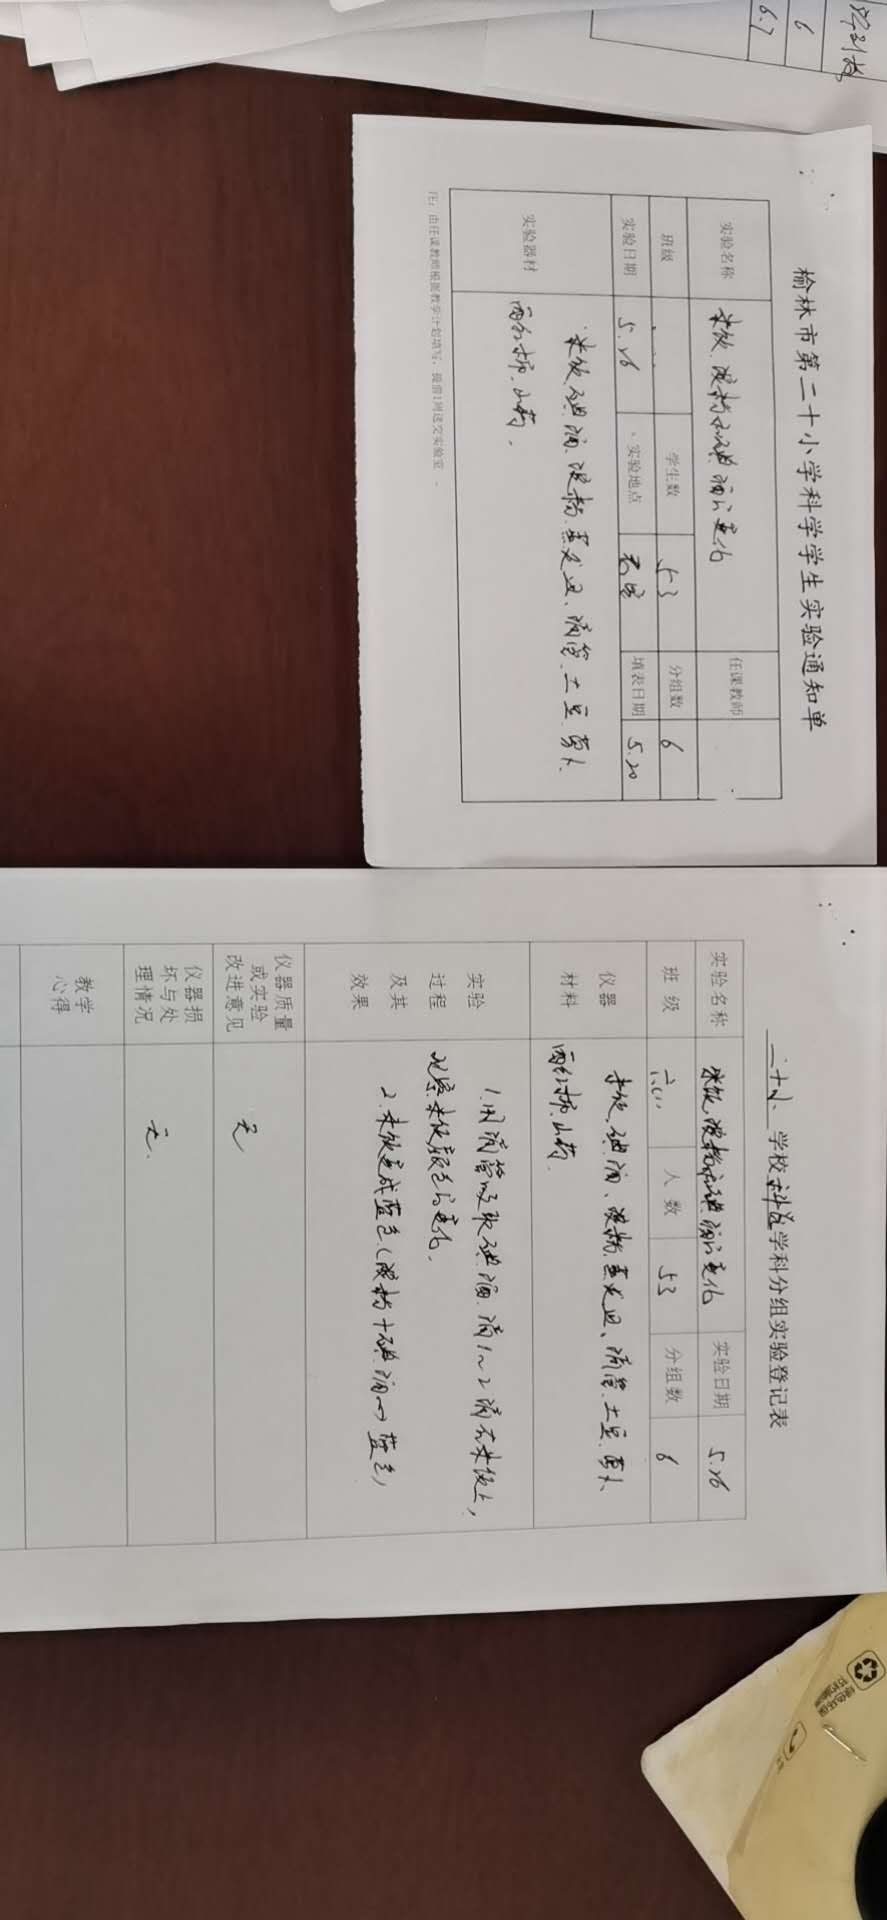 榆林市第二十小学科学学生实验通知单
实验名称 米饭、淀粉和碘酒的变化 任课教师
班级 学生数 53 分组数 6
实验日期 5.26 实验地点 教室 填表日期 5.20
实验器材 米饭、碘酒、淀粉、蒸发皿、滴管、土豆、萝卜、
西红柿、山药。
注：由任课教师根据教学计划填写，提前1周送交实验室
二十小 学校 科学 学科分组实验登记表
实验名称 米饭、淀粉和碘酒的变化 实验日期 5.26
班级 六(1) 人数 53 分组数 6
仪器材料 米饭、碘酒、淀粉、蒸发皿、滴管、土豆、萝卜、
西红柿、山药
实验过程及其效果 1.用滴管吸取碘酒，滴1~2滴在米饭上，
观察米饭颜色的变化。
2.米饭变成蓝色（淀粉+碘酒→蓝色）
仪器质量或实验改进意见 无
仪器损坏与处理情况 无.
教学心得
6
6.7